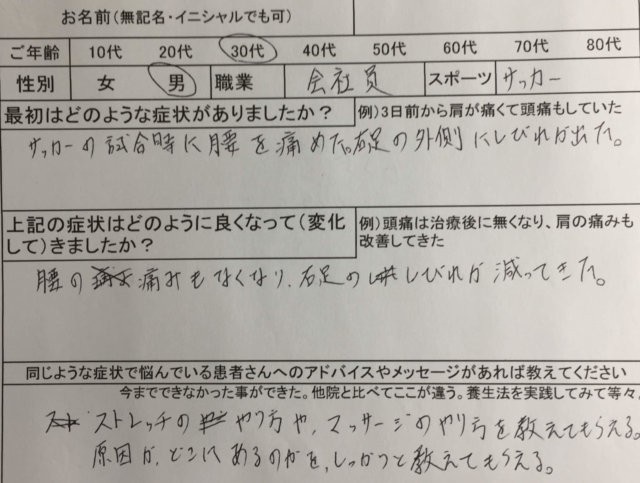 お名前（無記名・イニシャルでも可）
ご年齢 10代 20代 30代 40代 50代 60代 70代 80代
性別 女 男 職業 会社員 スポーツ サッカー
最初はどのような症状がありましたか？ 例）3日前から肩が痛くて頭痛もしていた
サッカーの試合時に腰を痛めた。右足の外側にしびれが出た。
上記の症状はどのように良くなって（変化して）きましたか？ 例）頭痛は治療後に無くなり、肩の痛みも改善してきた
腰の痛みもなくなり、右足のしびれが減ってきた。
同じような症状で悩んでいる患者さんへのアドバイスやメッセージがあれば教えてください
今までできなかった事ができた。他院と比べてここが違う。養生法を実践してみて等々。
ストレッチのやり方や、マッサージのやり方を教えてもらえる。
原因が、どこにあるのかを、しっかりと教えてもらえる。